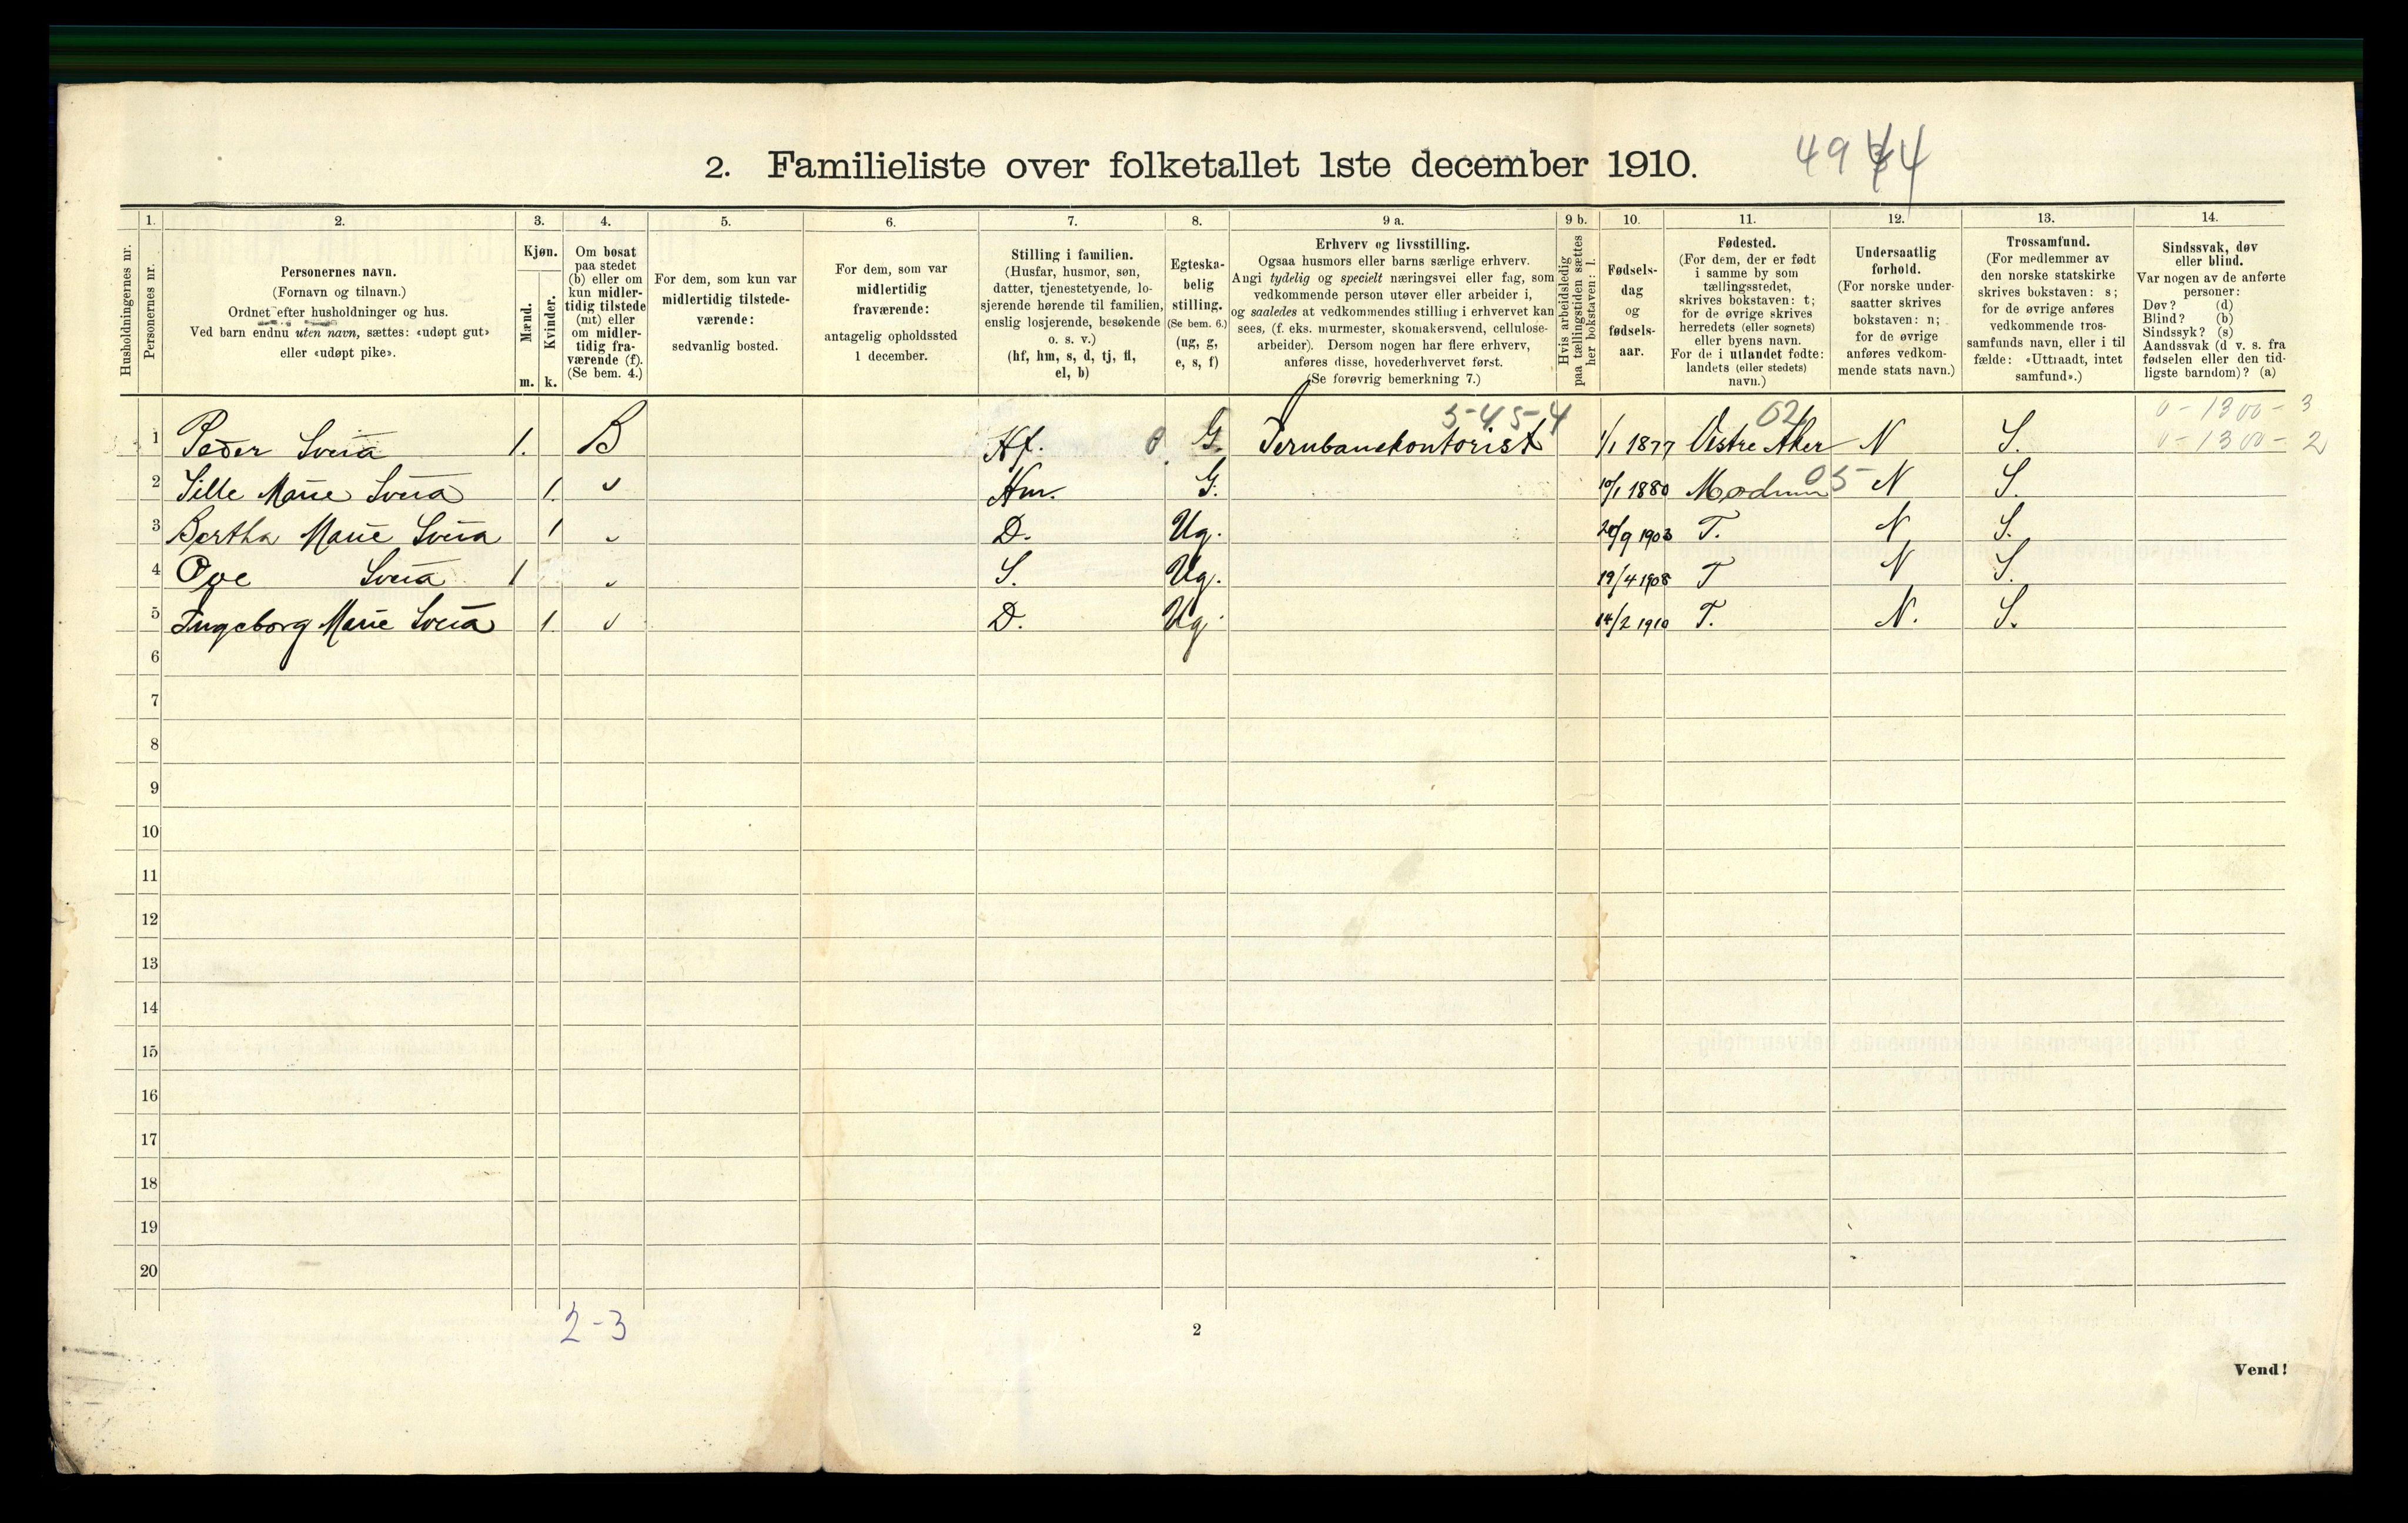 2. Familieliste over folketallet 1ste december 1910.
49 44
Husholdningernes nr.
1.
Personernes nr.
2.
Personernes navn.
(Fornavn og tilnavn.)
Ordnet efter husholdninger og hus.
Ved barn endnu uten navn, sættes: «udøpt gut»
eller «udøpt pike».
3.
Kjøn.
Mænd.
Kvinder.
m. k.
4.
Om bosat
paa stedet
(b) eller om
kun midler-
tidig tilstede
(mt) eller
om midler-
tidig fra-
værende (f).
(Se bem. 4.)
5.
For dem, som kun var
midlertidig tilstede-
værende:
sedvanlig bosted.
6.
For dem, som var
midlertidig
fraværende:
antagelig opholdssted
1 december.
7.
Stilling i familien.
(Husfar, husmor, søn,
datter, tjenestetyende, lo-
sjerende hørende til familien,
enslig losjerende, besøkende
o. s. v.)
(hf, hm, s, d, tj, fl,
el, b)
8.
Egteska-
belig
stilling.
(Se bem. 6.)
(ug, g,
e, s, f)
9 a.
Erhverv og livsstilling.
Ogsaa husmors eller barns særlige erhverv.
Angi tydelig og specielt næringsvei eller fag, som
vedkommende person utøver eller arbeider i,
og saaledes at vedkommendes stilling i erhvervet kan
sees, (f. eks. murmester, skomakersvend, cellulose-
arbeider). Dersom nogen har flere erhverv,
anføres disse, hovederhvervet først.
(Se forøvrig bemerkning 7.)
9 b.
Hvis arbeidsledig
paa tællingstiden sættes
her bokstaven: l.
10.
Fødsels-
dag
og
fødsels-
aar.
11.
Fødested.
(For dem, der er født
i samme by som
tællingsstedet,
skrives bokstaven: t;
for de øvrige skrives
herredets (eller sognets)
eller byens navn.
For de i utlandet fødte:
landets (eller stedets)
navn.)
12.
Undersaatlig
forhold.
(For norske under-
saatter skrives
bokstaven: n;
for de øvrige
anføres vedkom-
mende stats navn.)
13.
Trossamfund.
(For medlemmer av
den norske statskirke
skrives bokstaven: s;
for de øvrige anføres
vedkommende tros-
samfunds navn, eller i til
fælde: «Uttraadt, intet
samfund».)
14.
Sindssvak, døv
eller blind.
Var nogen av de anførte
personer:
Døv? (d)
Blind? (b)
Sindssyk? (s)
Aandssvak (d v. s. fra
fødselen eller den tid-
ligste barndom)? (a)
5-45-4 02 0-1300-3
1 Peder Sveia 1. B Hf. 0 G. Jernbanekontorist 1/1 1877 Vestre Aker N S. 0-1300-2
2 Sille Marie Sveia 1. Hm. G. 10/1 1880 Modum 05 N S.
3 Bertha Marie Sveia 1 D. Ug. 20/9 1903 T. N S.
4 Ove Sveia 1 S. Ug. 19/4 1908 T N S.
5 Ingeborg Marie Sveia 1. D. Ug. 14/2 1910 T. N. S.
6
7
8
9
10
11
12
13
14
15
16
17
18
19
20
2-3
2
Vend!